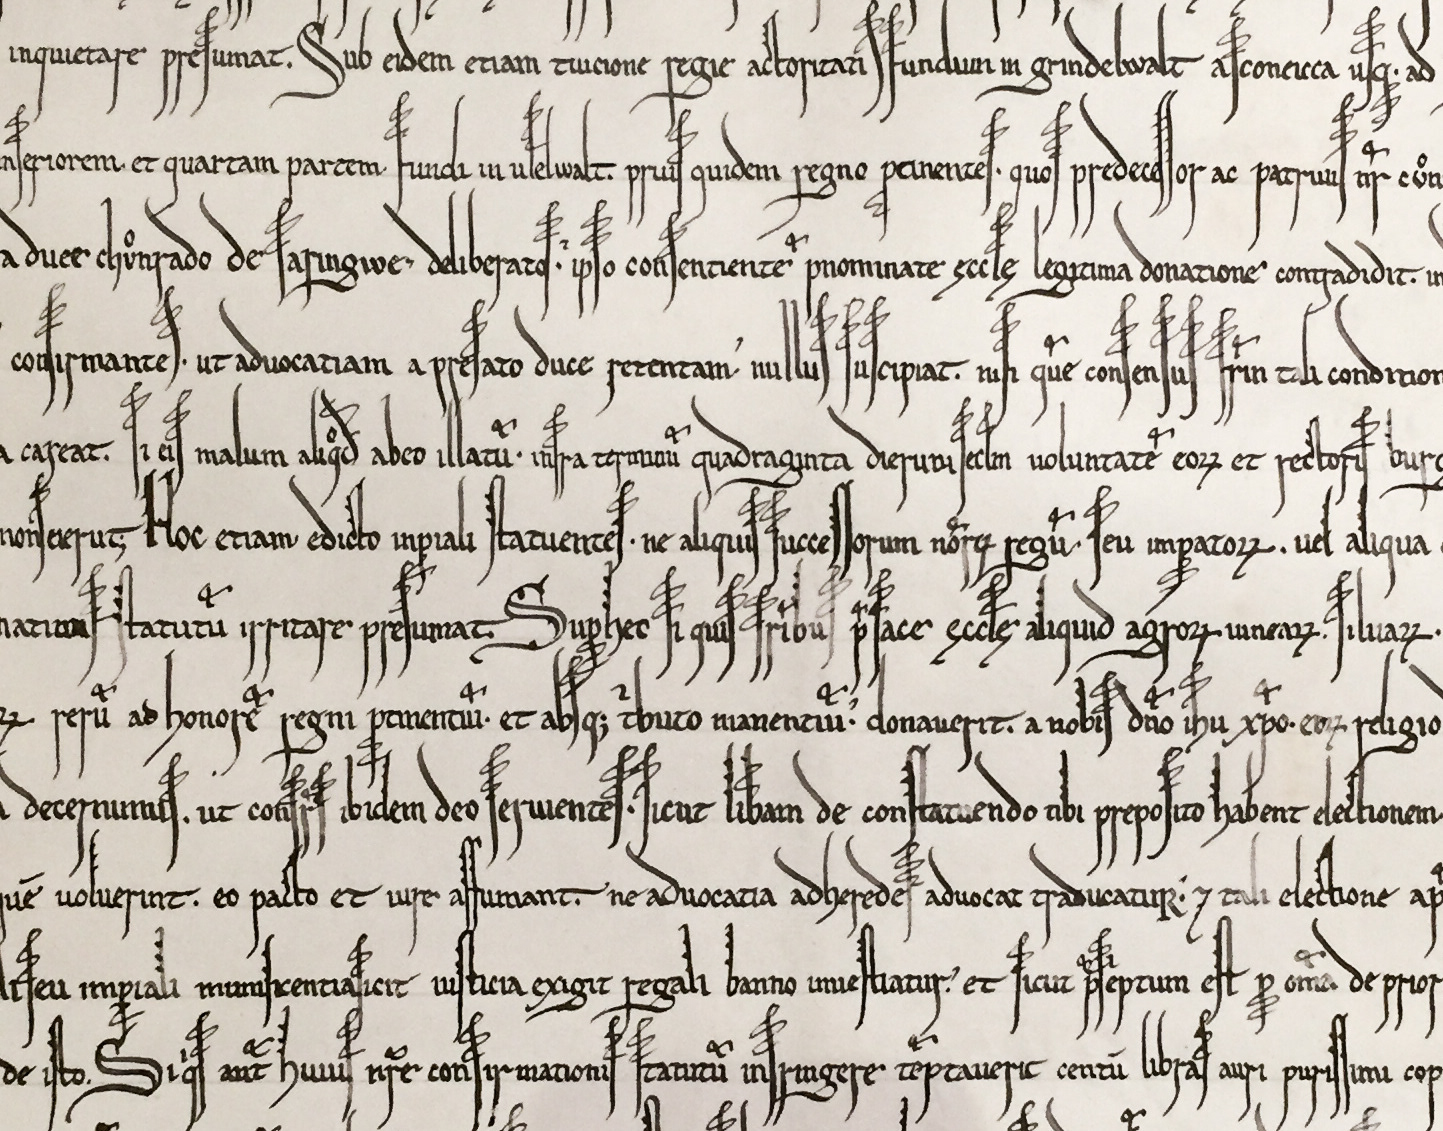 inquietare presumat. Sub eidem etiam tuicione regie actoritati fundum in grindelwalt a sconeicca usq. ad
inferiorem. et quartam partem fundi in uselwalt. prius quidem regno ptinentes. quos predecessor ac patruus nr cůn
a duce chůnrado de saringwe deliberatos. ipso consentiente pnominate ęccle legitima donatione contradidit. in
confirmantes. ut advocatiam a prefato duce retentam nullus suscipiat. nisi que consensus frin tali condition
a careat. si eis malum aliqd ab eo illatū. infra terminū quadraginta dierum secdm voluntatē eorꝝ et rectoris burg
non sierut; Hoc etiam edicto inpiali statuentes. ne aliquis successorum nrorꝝ regū. seu impatorꝝ. vel aliqua
statutū irritare presumat. Suphec si quis fribus pface ęccle aliquid agrorꝝ vinearꝝ. siluarꝝ.
rerū ad honorē regni ptinentiū. et absq; tbuto manentiū. donaverit. a nobis dno ihu xpo. eorꝝ religio
decernimus. ut confrs ibidem deo servientes. sicut libam de constatuendo tibi preposito habent electionem.
quē voluerint. eo pacto et iure assumant. ne advocatia adheredes advocat traducatur. ⁊ tali electione ap
seu impiali munificentia sicut iusticia exigit regali banno investiatur. et sicut pseptum est p oma. de prior
de isto. Siqs aut huius nrse confirmationis statutū infringere teptaverit centū libras auri purissimi cop